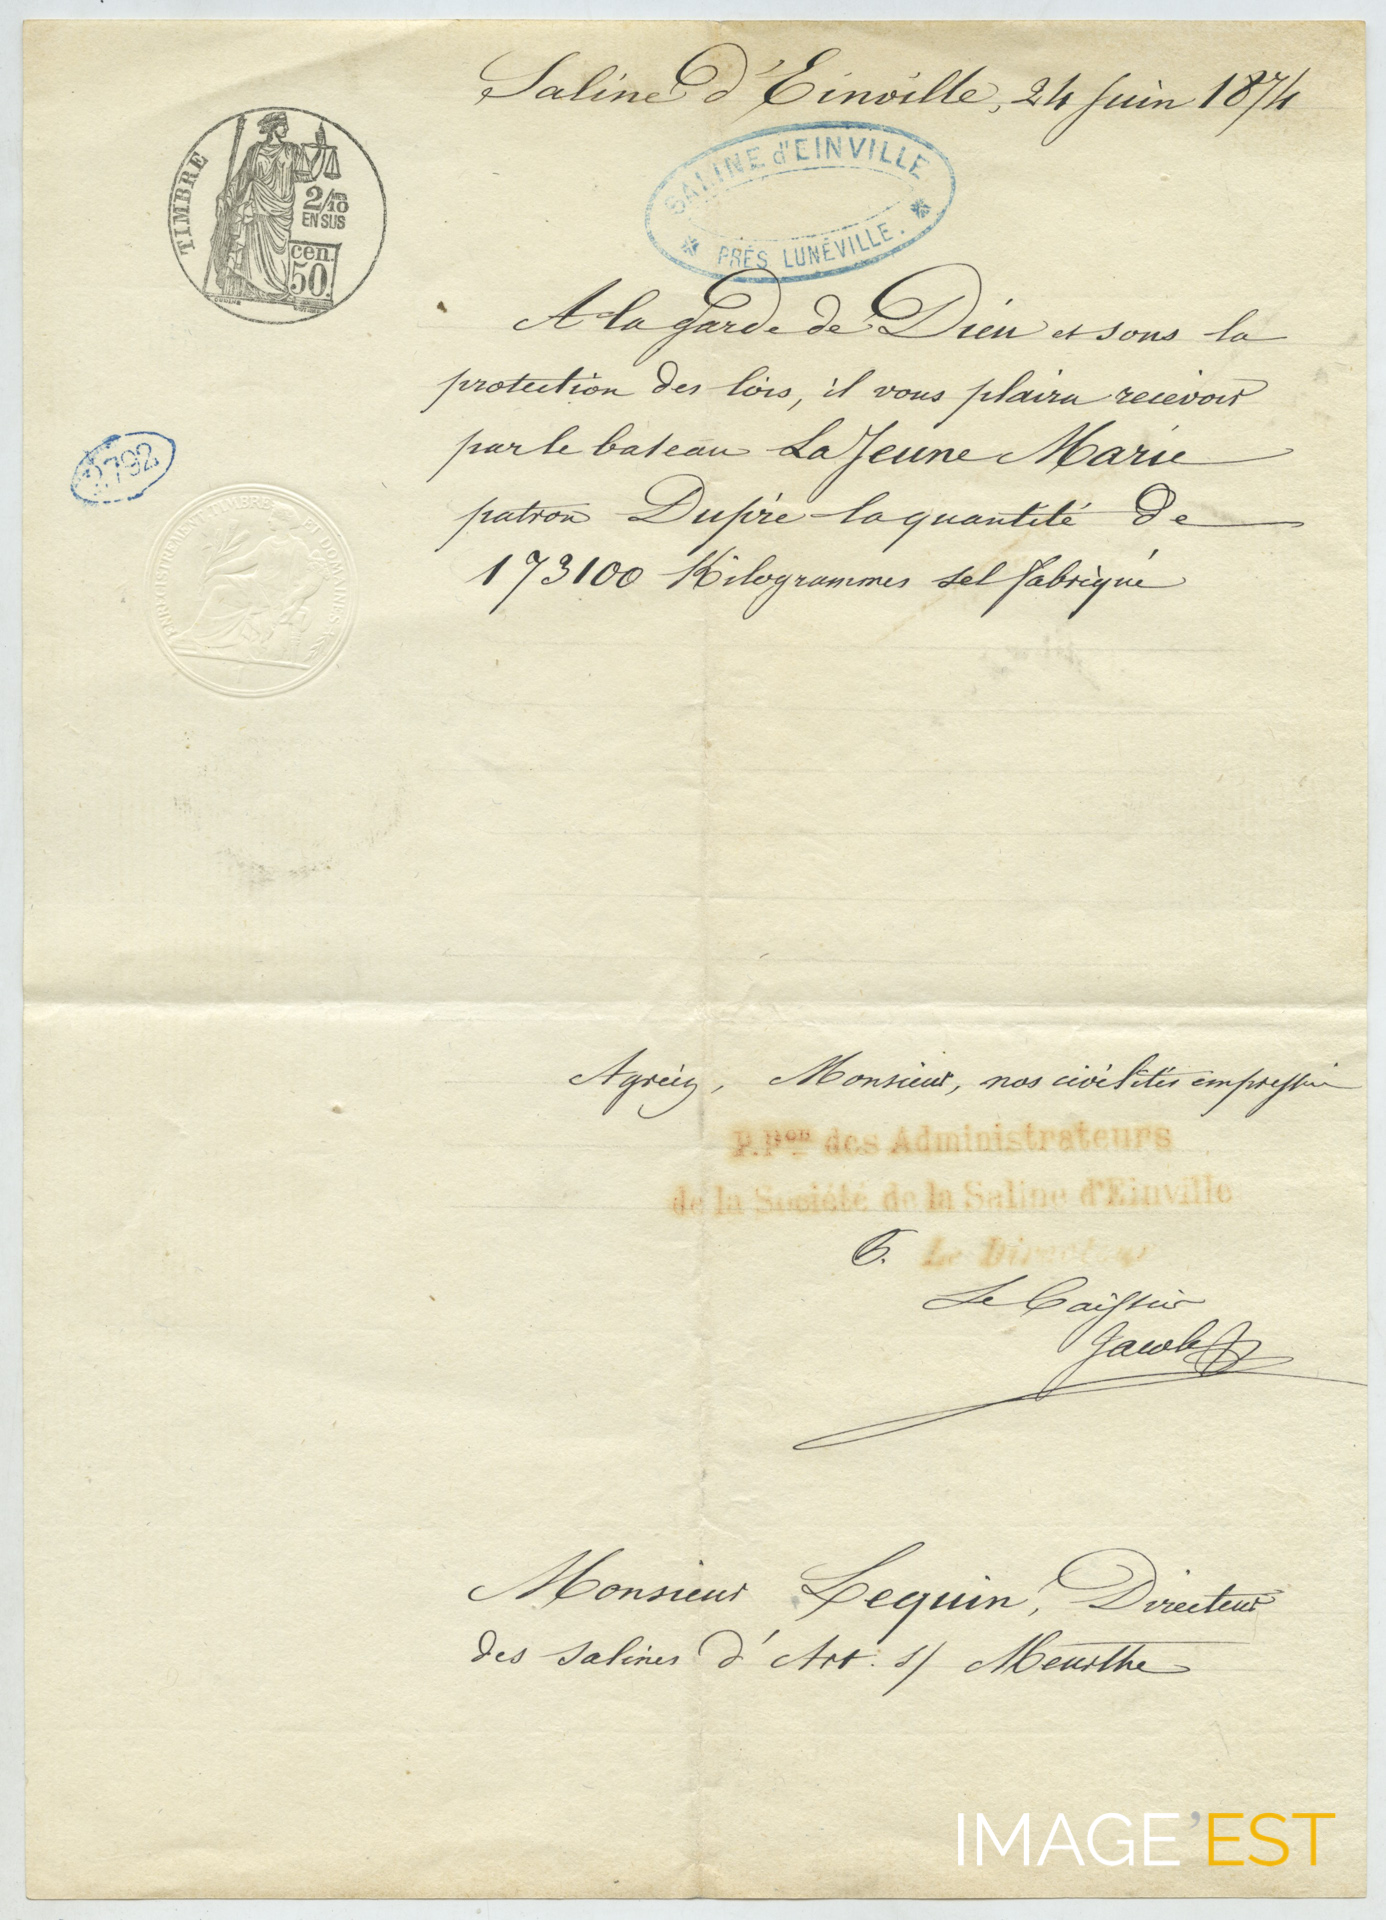 Saline d'Einville, 24 Juin 1874
TIMBRE
2/10 MES
EN SUS
cen.
50.
SALINE d'EINVILLE
PRÈS LUNÉVILLE.
A la garde de Dieu et sous la
protection des lois, il vous plaira recevoir
par le bateau La Jeune Marie
patron Dupré la quantité de
173100 Kilogrammes sel fabriqué
2792
ENREGISTREMENT TIMBRE ET DOMAINES
Agréez, Monsieur, nos civilités empressées
P. Pon des Administrateurs
de la Société de la Saline d'Einville
Le Directeur
Le Caissier
Jacob
Monsieur Lequin, Directeur
des salines d'Art. s/ Meurthe
IMAGE'EST